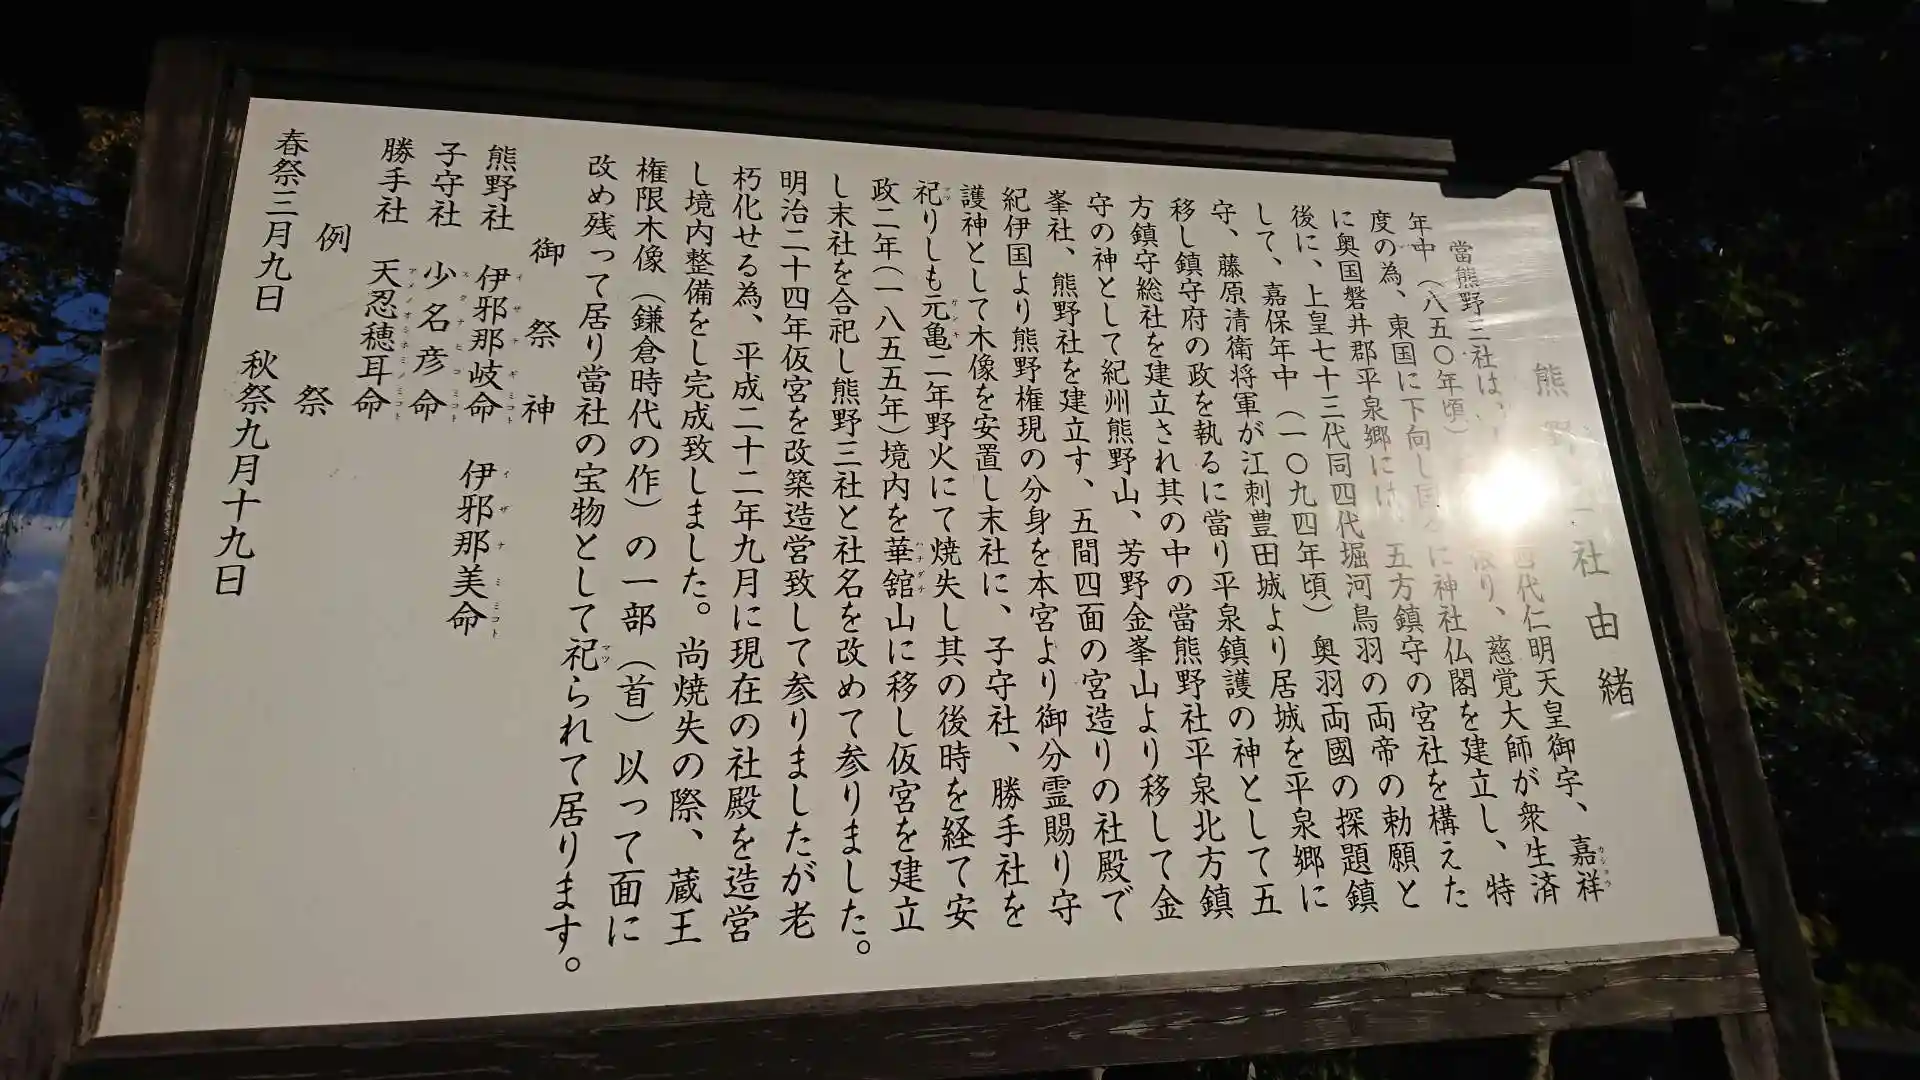 熊野 社由緒
當熊野三社は、 四代仁明天皇御宇、嘉祥
年中（八五〇年頃） 依り、慈覚大師が衆生済
度の為、東国に下向し国 に神社仏閣を建立し、特
に奥国磐井郡平泉郷には、五方鎮守の宮社を構えた
後に、上皇七十三代同四代堀河鳥羽の両帝の勅願と
して、嘉保年中（一〇九四年頃）奥羽両國の探題鎮
守、藤原清衛将軍が江刺豊田城より居城を平泉郷に
移し鎮守府の政を執るに當り平泉鎮護の神として五
方鎮守総社を建立され其の中の當熊野社平泉北方鎮
守の神として紀州熊野山、芳野金峯山より移して金
峯社、熊野社を建立す、五間四面の宮造りの社殿で
紀伊国より熊野権現の分身を本宮より御分霊賜り守
護神として木像を安置し末社に、子守社、勝手社を
祀りしも元亀二年野火にて焼失し其の後時を経て安
政二年（一八五五年）境内を華舘山に移し仮宮を建立
し末社を合祀し熊野三社と社名を改めて参りました。
明治二十四年仮宮を改築造営致して参りましたが老
朽化せる為、平成二十二年九月に現在の社殿を造営
し境内整備をし完成致しました。尚焼失の際、蔵王
権限木像（鎌倉時代の作）の一部（首）以って面に
改め残って居り當社の宝物として祀られて居ります。
御祭神
熊野社 伊邪那岐命 伊邪那美命
子守社 少名彦命
勝手社 天忍穂耳命
例祭
春祭三月九日 秋祭九月十九日